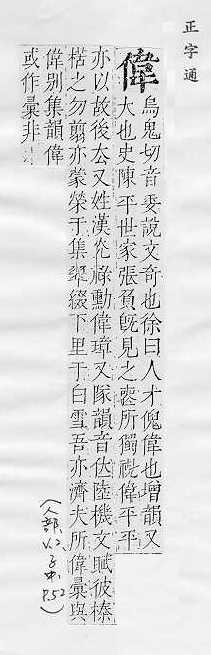 正字通
偉
烏鬼切音委說文奇也徐曰人才傀偉也增韻又
大也史陳平世家張負旣見之喪所獨視偉平平
亦以故後去又姓漢光祿勳偉璋又隊韻音位陸機文賦彼榛
楛之勿翦亦蒙榮于集翠綴下里于白雪吾亦濟夫所偉彙與
偉别集韻偉
或作彙非
(人部
V.2
子中
P.52)